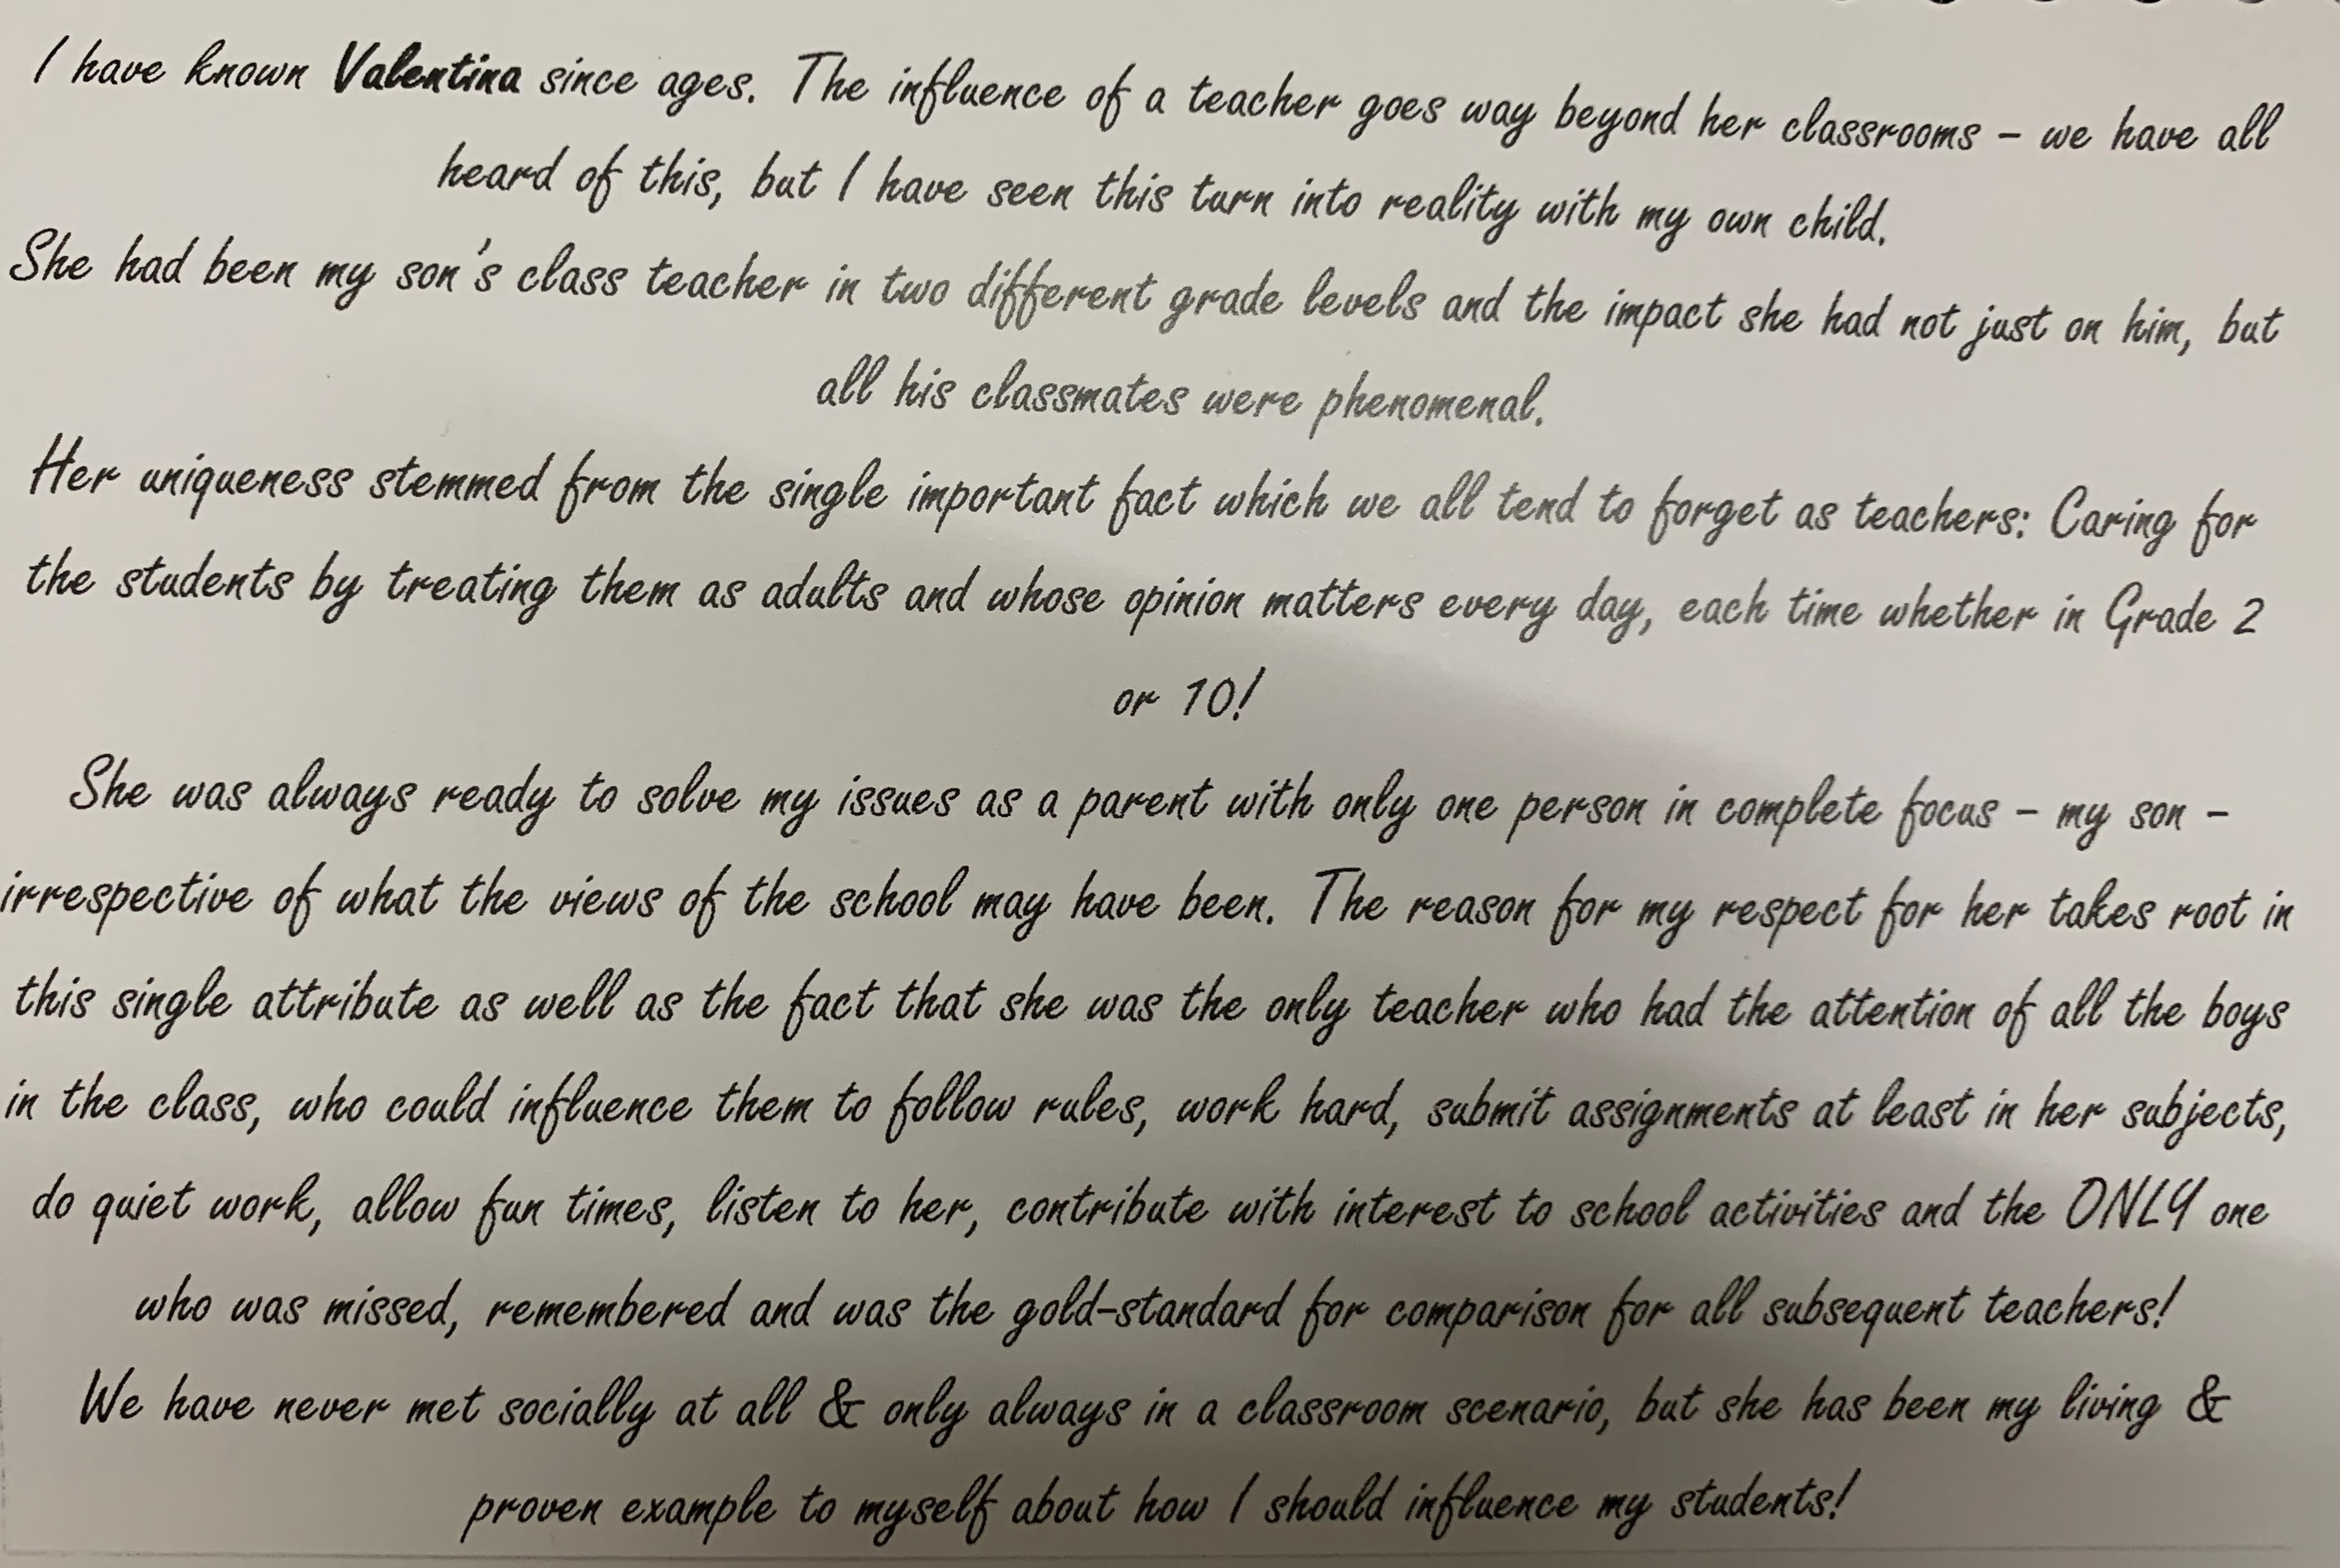 I have known Valentina since ages. The influence of a teacher goes way beyond her classrooms – we have all
heard of this, but I have seen this turn into reality with my own child.
She had been my son's class teacher in two different grade levels and the impact she had not just on him, but
all his classmates were phenomenal.
Her uniqueness stemmed from the single important fact which we all tend to forget as teachers: Caring for
the students by treating them as adults and whose opinion matters every day, each time whether in Grade 2
or 10!
She was always ready to solve my issues as a parent with only one person in complete focus – my son –
irrespective of what the views of the school may have been. The reason for my respect for her takes root in
this single attribute as well as the fact that she was the only teacher who had the attention of all the boys
in the class, who could influence them to follow rules, work hard, submit assignments at least in her subjects,
do quiet work, allow fun times, listen to her, contribute with interest to school activities and the ONLY one
who was missed, remembered and was the gold-standard for comparison for all subsequent teachers!
We have never met socially at all & only always in a classroom scenario, but she has been my living &
proven example to myself about how I should influence my students!